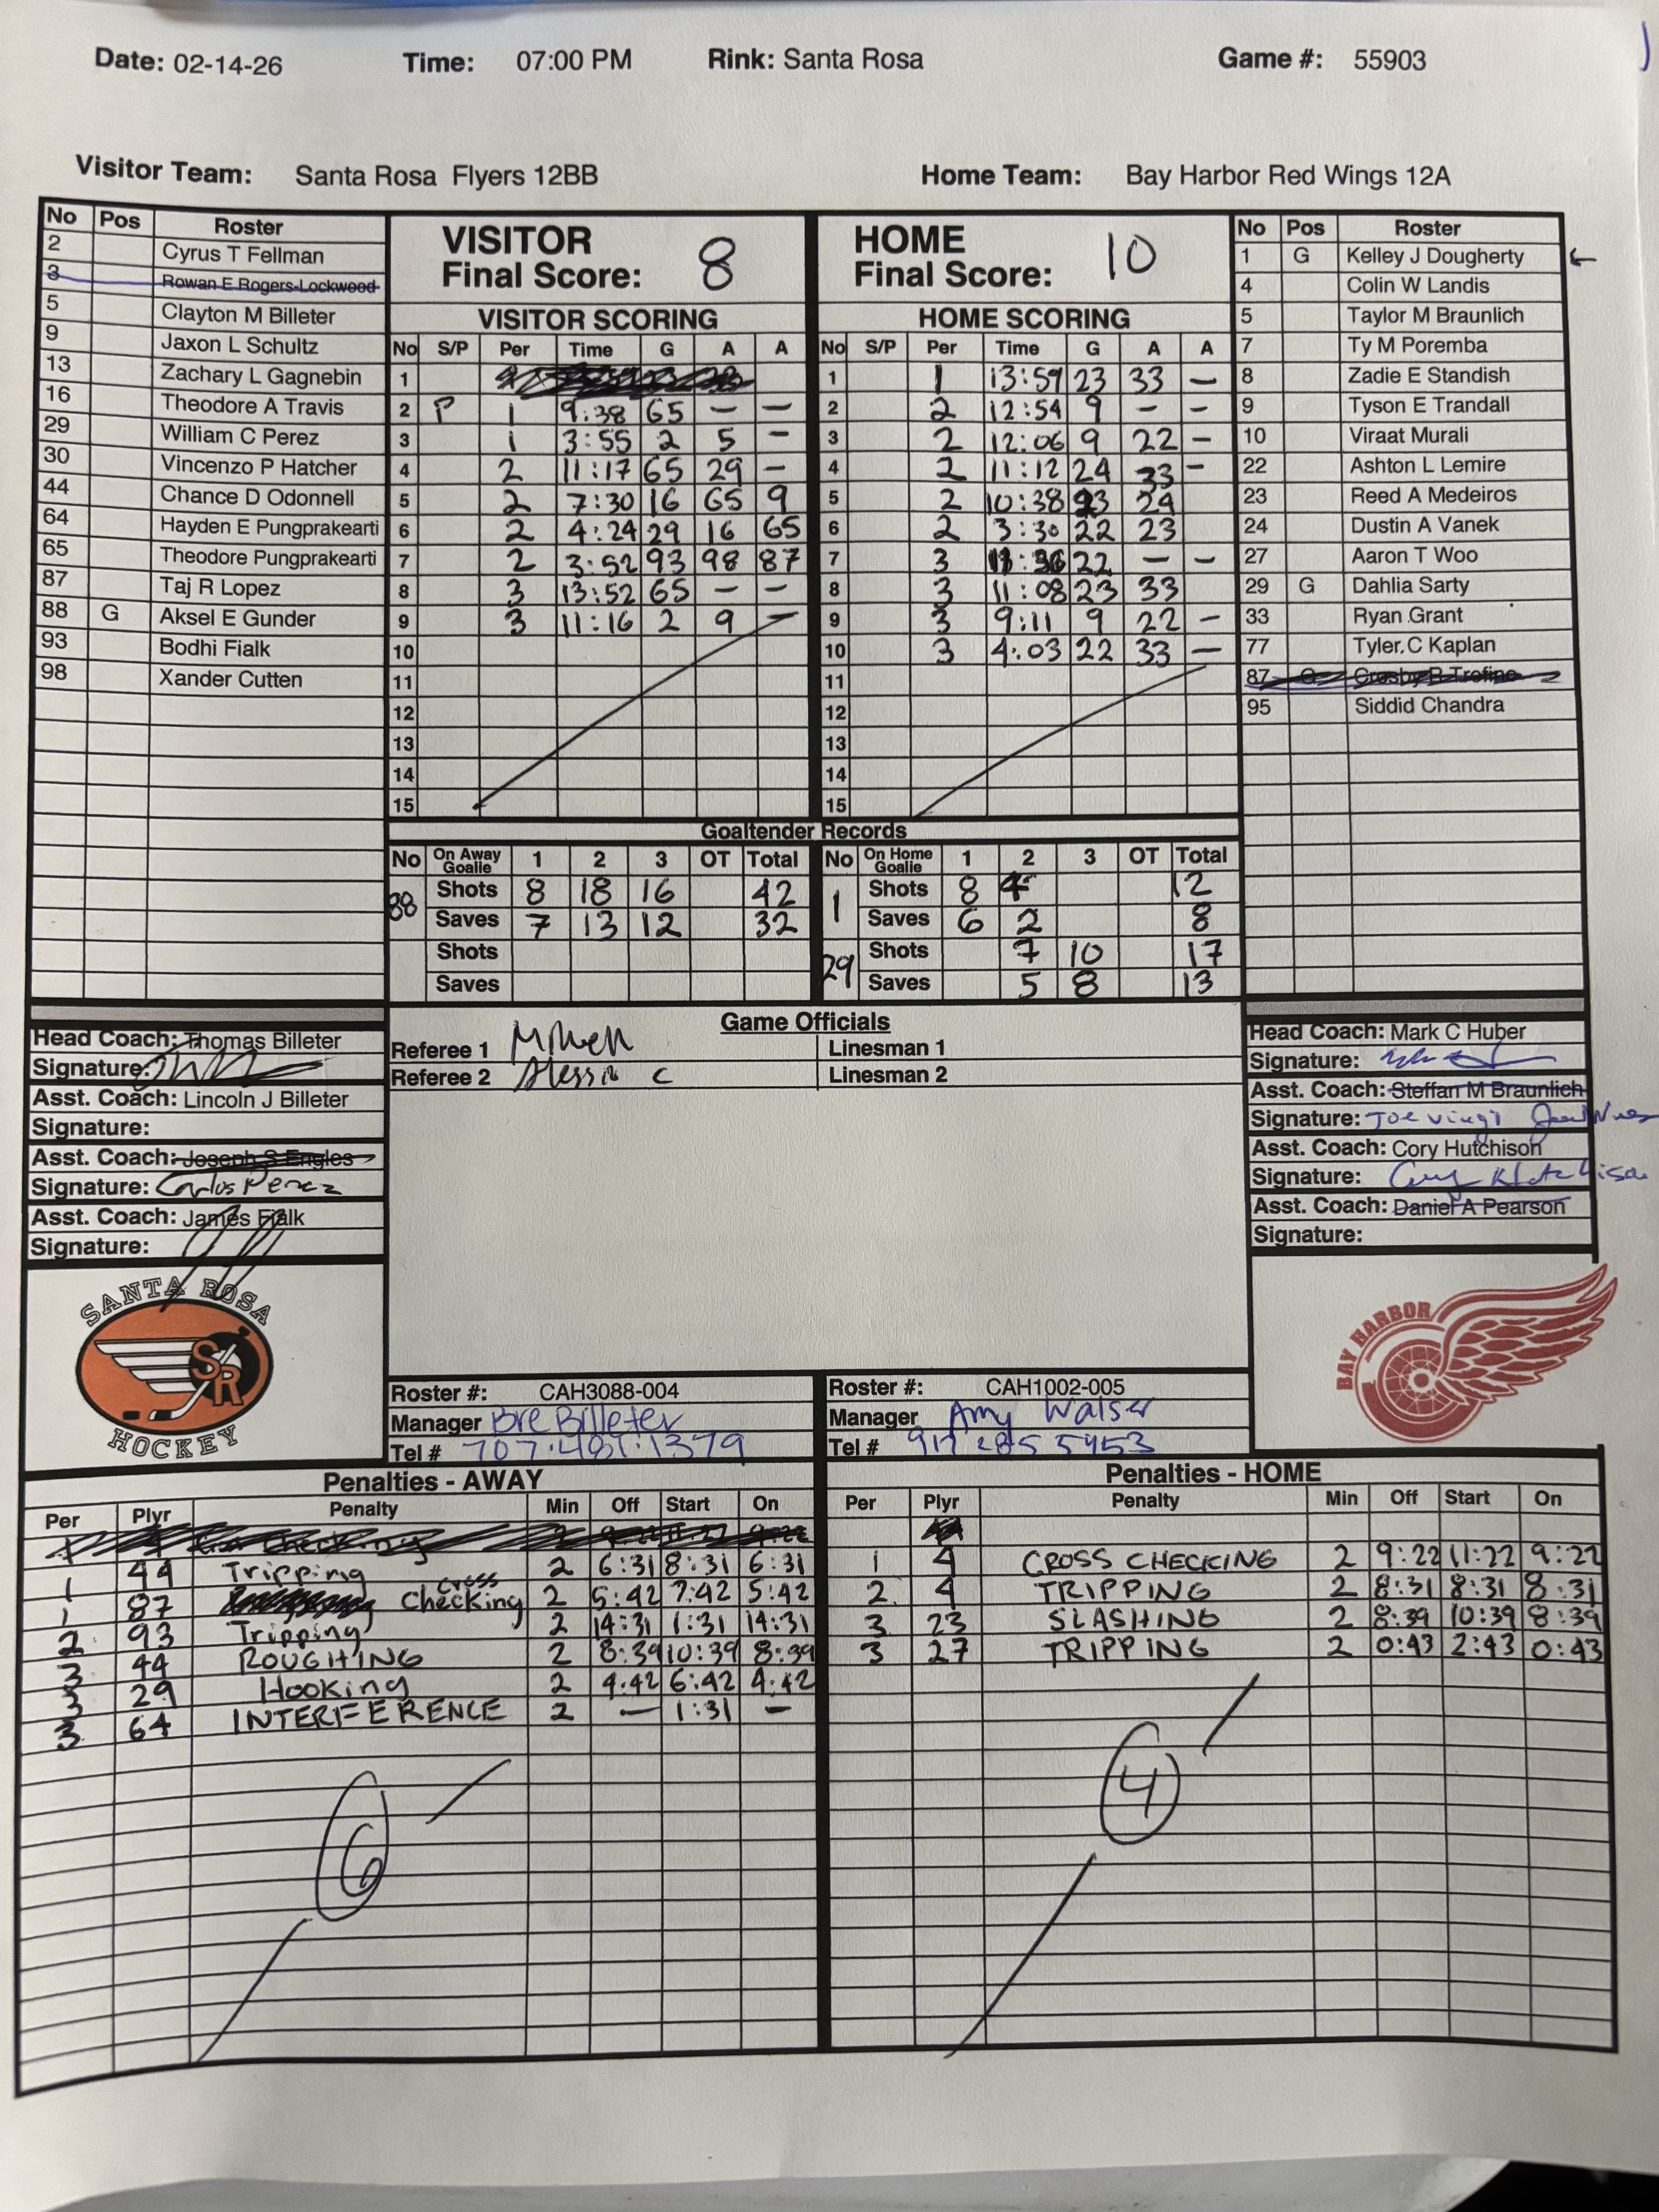 Date: 02-14-26 Time: 07:00 PM Rink: Santa Rosa Game #: 55903
Visitor Team: Santa Rosa Flyers 12BB Home Team: Bay Harbor Red Wings 12A
No Pos Roster
2 Cyrus T Fellman
3 Rowan E Rogers-Lockwood
5 Clayton M Billeter
9 Jaxon L Schultz
13 Zachary L Gagnebin
16 Theodore A Travis
29 William C Perez
30 Vincenzo P Hatcher
44 Chance D Odonnell
64 Hayden E Pungprakearti
65 Theodore Pungprakearti
87 Taj R Lopez
88 G Aksel E Gunder
93 Bodhi Fialk
98 Xander Cutten
VISITOR
Final Score: 8
VISITOR SCORING
No S/P Per Time G A A
1
2 P 1 9:38 65 - -
3 1 3:55 2 5 -
4 2 11:17 65 29 -
5 2 7:30 16 65 9
6 2 4:24 29 16 65
7 2 3:52 93 98 87
8 3 13:52 65 - -
9 3 11:16 2 9 -
10
11
12
13
14
15
HOME
Final Score: 10
HOME SCORING
No S/P Per Time G A A
1 1 13:59 23 33 -
2 2 12:54 9 - -
3 2 12:06 9 22 -
4 2 11:12 24 33 -
5 2 10:38 24
6 2 3:30 22 23
7 3 22 - -
8 3 11:08 23 33
9 3 9:11 9 22 -
10 3 4:03 22 33 -
11
12
13
14
15
No Pos Roster
1 G Kelley J Dougherty ←
4 Colin W Landis
5 Taylor M Braunlich
7 Ty M Poremba
8 Zadie E Standish
9 Tyson E Trandall
10 Viraat Murali
22 Ashton L Lemire
23 Reed A Medeiros
24 Dustin A Vanek
27 Aaron T Woo
29 G Dahlia Sarty
33 Ryan Grant
77 Tyler.C Kaplan
87 G Crosby
95 Siddid Chandra
Goaltender Records
No On Away Goalie 1 2 3 OT Total
88 Shots 8 18 16 42
Saves 7 13 12 32
Shots
Saves
No On Home Goalie 1 2 3 OT Total
1 Shots 8 4 12
Saves 6 2 8
29 Shots 7 10 17
Saves 5 8 13
Head Coach: Thomas Billeter
Signature:
Asst. Coach: Lincoln J Billeter
Signature:
Asst. Coach: Joseph S Engles
Signature: Carlos Perez
Asst. Coach: James Fialk
Signature:
Game Officials
Referee 1
Referee 2 c
Linesman 1
Linesman 2
Head Coach: Mark C Huber
Signature:
Asst. Coach: Steffan M Braunlich
Signature: Joe
Asst. Coach: Cory Hutchison
Signature: Cory Hutchison
Asst. Coach: Daniel A Pearson
Signature:
SANTA ROSA
SR
HOCKEY
Roster #: CAH3088-004
Manager Bre Billeter
Tel # 707.481.1379
Roster #: CAH1002-005
Manager Amy Walser
Tel # 917 285 5453
BAY HARBOR
Penalties - AWAY
Per Plyr Penalty Min Off Start On
1 44 Tripping 2 6:31 8:31 6:31
1 87 cross checking 2 5:42 7:42 5:42
2 93 Tripping 2 14:31 1:31 14:31
3 44 ROUGHING 2 8:39 10:39 8:39
3 29 Hooking 2 4:42 6:42 4:42
3 64 INTERFERENCE 2 - 1:31 -
6
Penalties - HOME
Per Plyr Penalty Min Off Start On
1 4 CROSS CHECKING 2 9:22 11:22 9:22
2 4 TRIPPING 2 8:31 8:31 8:31
3 23 SLASHING 2 8:39 10:39 8:39
3 27 TRIPPING 2 0:43 2:43 0:43
4